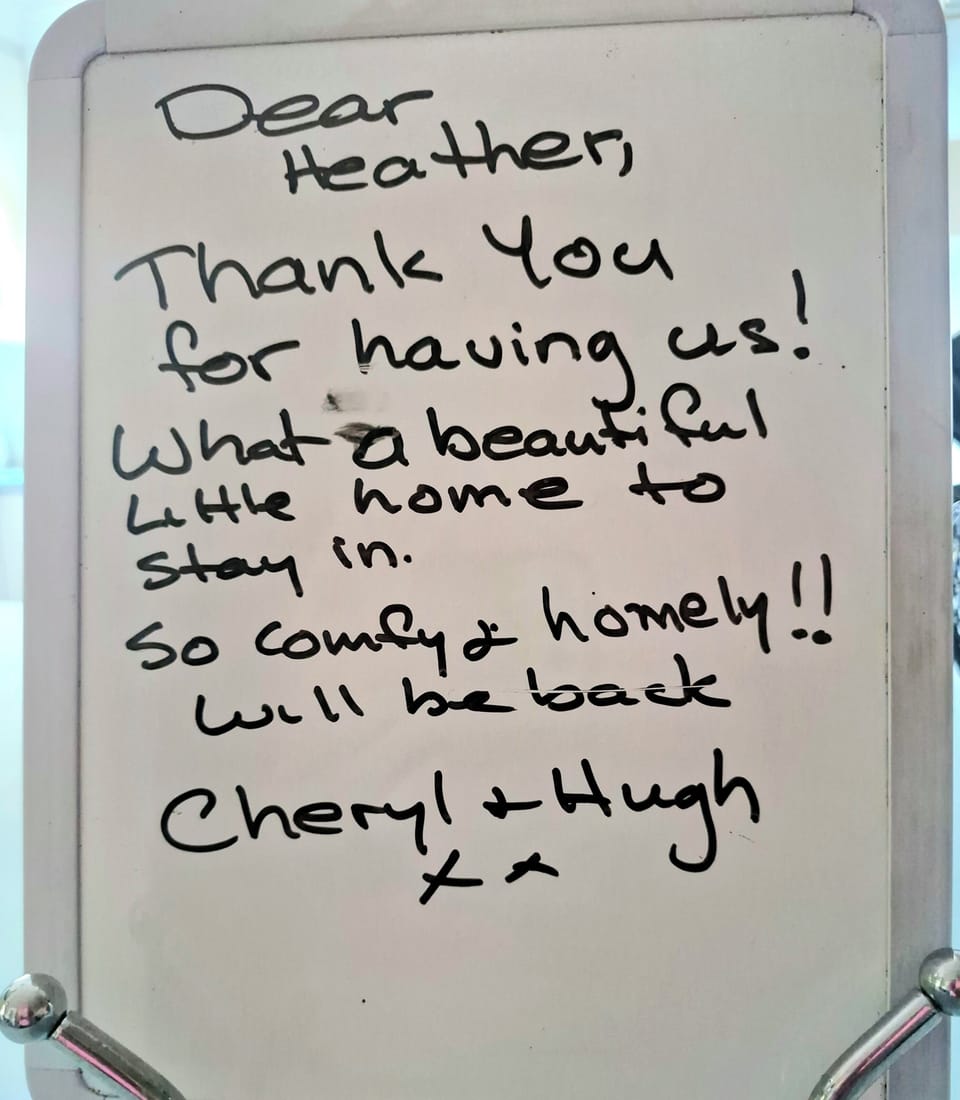 Dear
Heather,
Thank You
for having us!
What a beautiful
Little home to
stay in.
So comfy & homely!!
Will be back
Cheryl + Hugh
x x